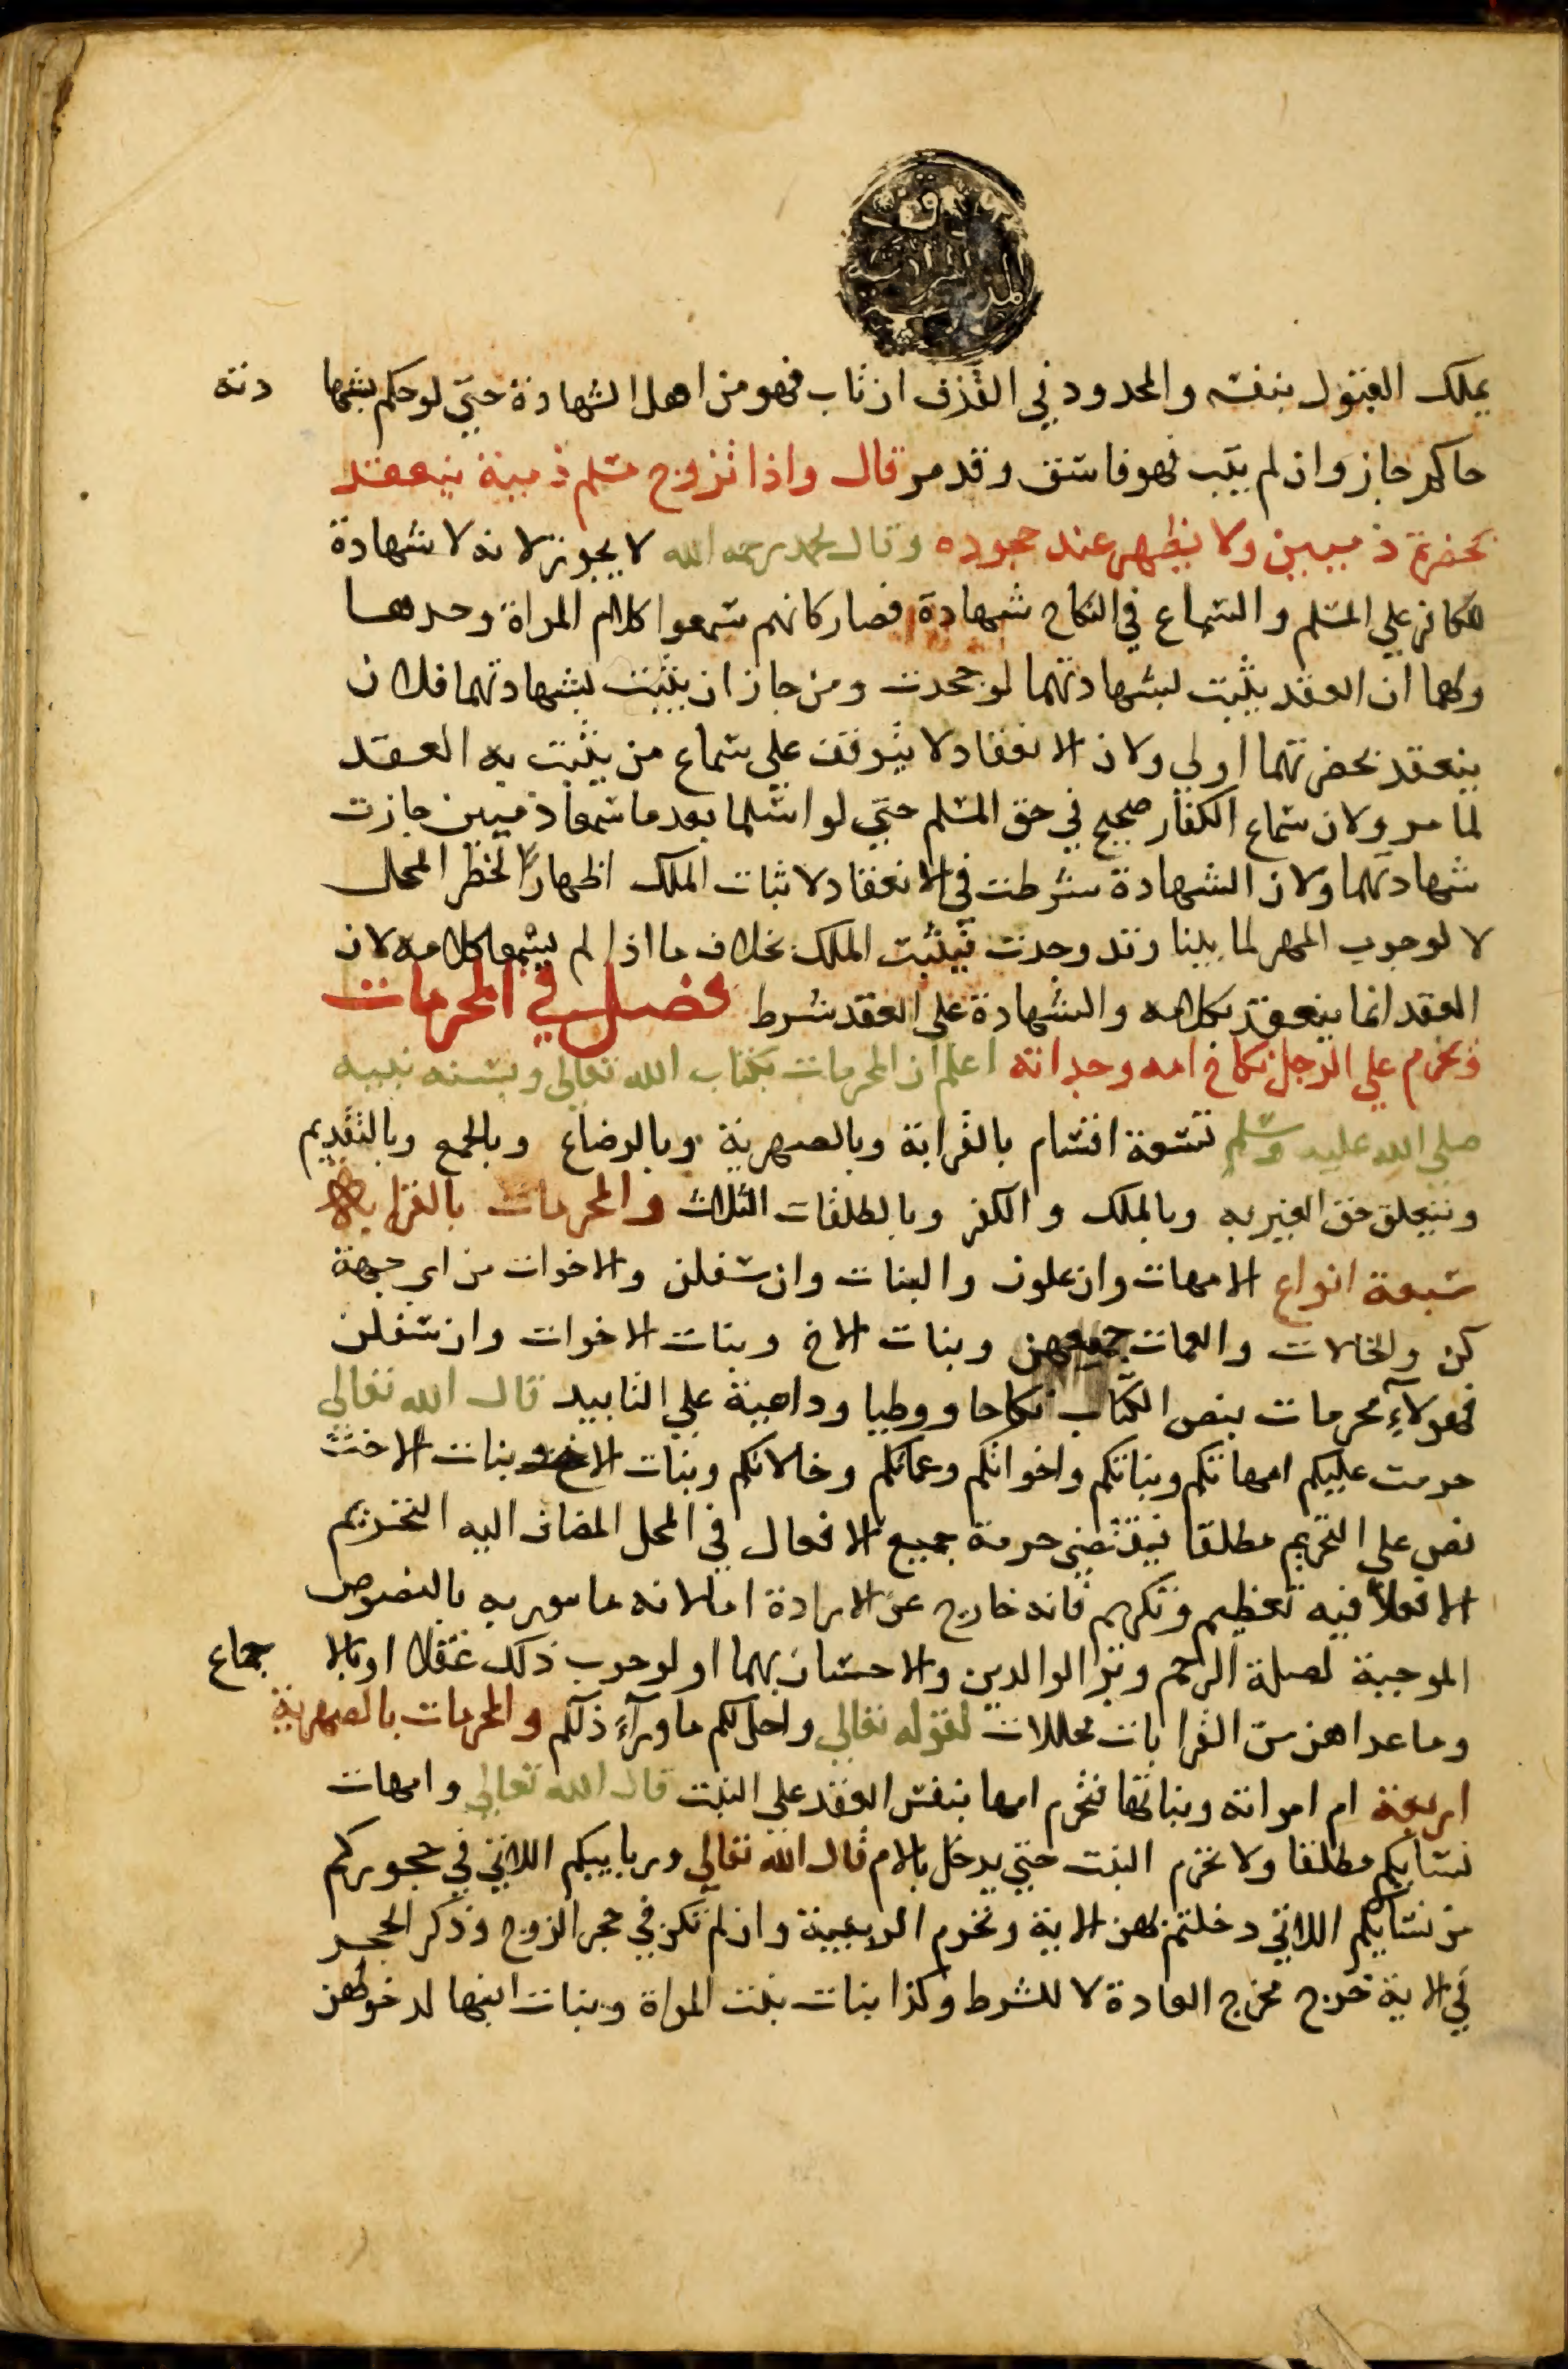 وقف
المدرسة
يملك القبول بنفسه والمحدود في القذف ان تاب فهو من اهل الشهادة حتي لو حكم بشها دته
حاكم جاز وان لم يتب فهو فاسق وقد مر قال واذا تزوج مسلم ذمية ينعقد
بحضرة ذميين ولا يظهر عند جحوده وقال محمد رحمه الله لا يجوز لانه لا شهادة
للكافر علي المسلم والسماع في النكاح شهادة فصار كانهم سمعوا كلام المراة وحدها
ولهما ان العقد يثبت بشهادتهما لو جحدت ومن جاز ان يثبت بشهادتهما فلان
ينعقد بحضرتهما اولي ولان الانعقاد لا يتوقف علي سماع من يثبت به العقد
لما مر ولان سماع الكفار صحيح في حق المسلم حتي لو اسلما بعد ما سمعا ذميين جازت
شهادتهما ولان الشهادة شرطت في الانعقاد لاثبات الملك اظهارًا لخطر المحل
لا لوجوب المهر لما بينا وقد وجدت فيثبت الملك بخلاف ما اذا لم يسمعا كلامه لان
العقد انما ينعقد بكلامه والشهادة علي العقد شرط فصل في المحرمات
وتحرم علي الرجل نكاح امه وجداته اعلم ان المحرمات بكتاب الله تعالي وبسنه نبيه
صلي الله عليه وسلم تسعة اقسام بالقرابة وبالصهرية وبالرضاع وبالجمع وبالتقديم
وبتعلق حق الغير به وبالملك والكفر وبالطلقات الثلاث والمحرمات بالقرابة
سبعة انواع الامهات وان علون والبنات وان سفلن والاخوات من اي جهة
كن والخالات والعمات جميعهن وبنات الاخ وبنات الاخوات وان سفلن
فهولآء محرمات بنص الكتاب نكاحا ووطيا وداعية علي التابيد قال الله تعالي
حرمت عليكم امهاتكم وبناتكم واخواتكم وعماتكم وخالاتكم وبنات الاخ وبنات الاخت
نص علي التحريم مطلقا فيقتضي حرمة جميع الافعال في المحل المضاف اليه التحريم
الا فعلا فيه تعظيم وتكريم فانه خارج عن الارادة اما لانه مامور به بالنصوص
الموجبة لصلة الرحم وبر الوالدين والاحسان بهما او لوجوب ذلك عقلا او بالا جماع
وما عداهن من القرابات محللات لقوله تعالي واحل لكم ما ورآء ذلكم والمحرمات بالصهرية
اربعة ام امراته وبناتها فتحرم امها بنفس العقد علي البنت قال الله تعالي وامهات
نسايكم مطلقا ولا تحرم البنت حتي يدخل بالام قال الله تعالي وربايبكم اللاتي في حجوركم
من نسايكم اللاتي دخلتم بهن الاية وتحرم الربيبة وان لم تكن في حجر الزوج وذكر الحجر
في الاية خرج مخرج العادة لا للشرط وكذا بنات بنت المراة وبنات ابنها لدخولهن